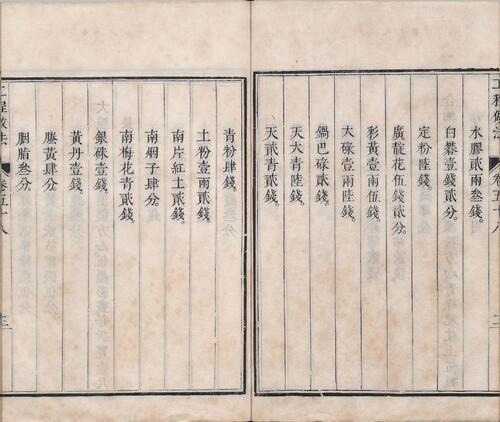 工程做法
卷五十八
水膠貳兩叁錢。
白礬壹錢貳分。
定粉陸錢。
廣靛花伍錢貳分。
彩黃壹兩伍錢。
大碌壹兩陸錢。
鍋巴碌貳錢。
天大青陸錢。
天貳青貳錢。
青粉肆錢。
土粉壹兩貳錢。
南片紅土貳錢。
南烟子肆分。
南梅花青貳錢。
銀硃壹錢。
黃丹壹錢。
籐黃肆分。
胭脂叁分。
工程做法
卷五十八